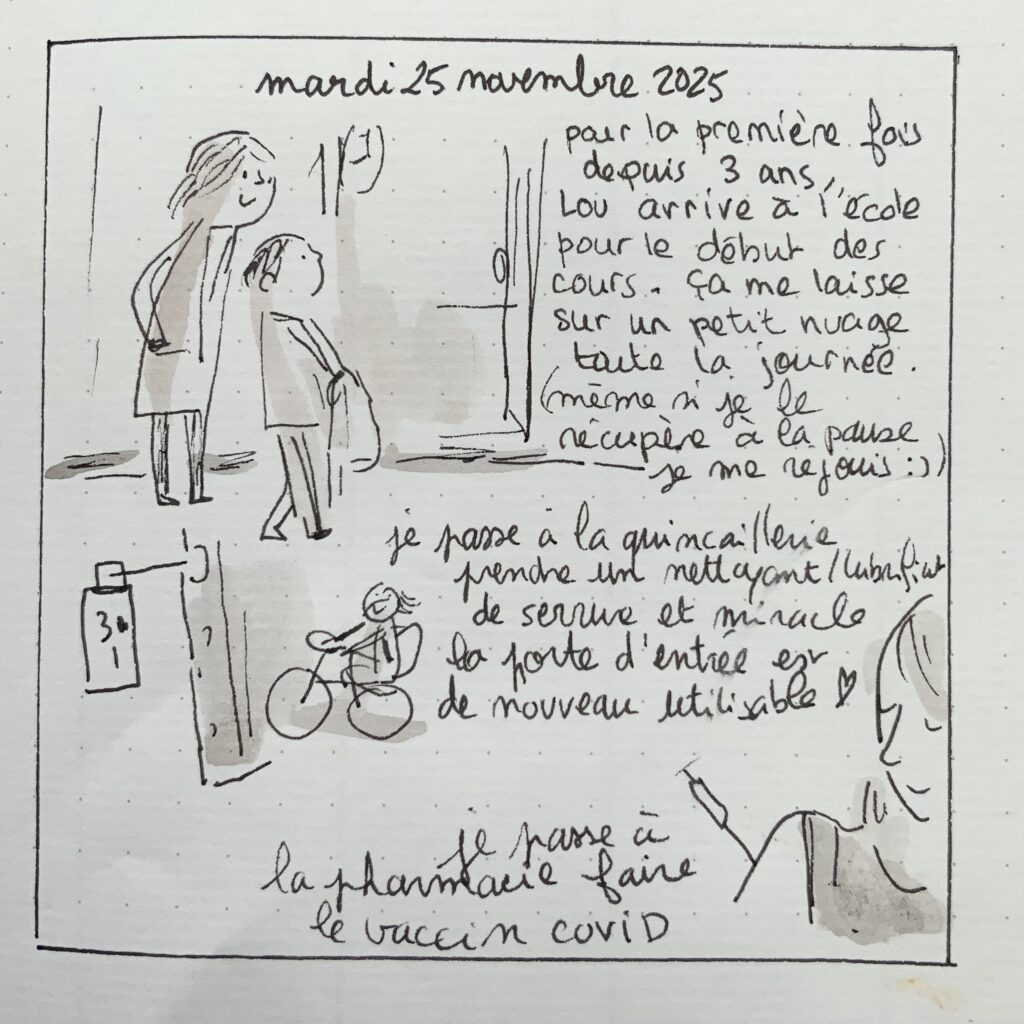 mardi 25 novembre 2025
pour la première fois
depuis 3 ans,
Lou arrive à l'école
pour le début des
cours. ça me laisse
sur un petit nuage
toute la journée.
(même si je le
récupère à la pause
je me rejouis :))
je passe à la quincaillerie
prendre un nettoyant/lubrifiant
de serrure et miracle
la porte d'entrée est
de nouveau utilisable ♡
3
1
je passe à
la pharmacie faire
le vaccin covid